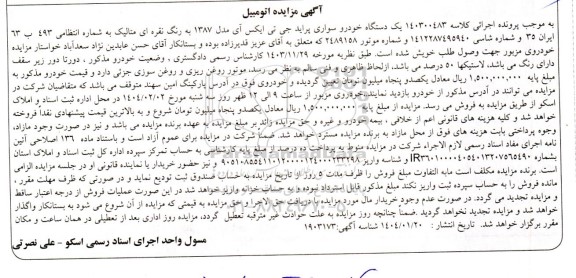 آگهی مزایده اتومبیل
به موجب پرونده اجرائی کلاسه ۱۴۰۳۰۰۴۸۳ یک دستگاه خودرو سواری پراید جی تی ایکس آی مدل ۱۳۸۷ به رنگ نقره ای متالیک به شماره انتظامی ۴۹۳ ب ۶۳
ایران ۳۵ و شماره شاسی ۱۴۱۲۲۸۷۴۹۵۹۴۰ و شماره موتور ۲۴۸۹۱۵۸ که متعلق به آقای عزیز قدیرزاده بوده و بستانکار آقای حسن عابدین نژاد سعدآباد خواستار مزایده
خودروی مزبور جهت وصول طلب خویش شده است. طبق نظریه مورخه ۱۴۰۳/۱۱/۲۹ کارشناس رسمی دادگستری، وضعیت خودرو مذکور، دورتا دور زیر سقف
دارای رنگ می باشد، لاستیکها ۵۰ درصد می باشد. ازلحاظ ظاهری و فنی سالم به نظر می رسد. موتور روغن ریزی و روغن سوزی جزئی دارد و قیمت خودرو مذکور به
مبلغ پایه ۱,۵۰۰,۰۰۰,۰۰۰ ریال معادل یکصدو پنجاه میلیون تومان تعیین گردیده و خودروی فوق در آدرس پارکینگ امین سهند متوقف می باشد که متقاضیان شرکت در
مزایده می توانند در آدرس مذکور از خودرو بازدید نمایند.خودروی مزبور از ساعت ۹ الی ۱۲ ظهر روز سه شنبه مورخ ۱۴۰۴/۰۲/۰۲ در محل اداره ثبت اسناد و املاک
اسکو از طریق مزایده به فروش می رسد. مزایده از مبلغ پایه ۱,۵۰۰,۰۰۰,۰۰۰ ریال معادل یکصدو پنجاه میلیون تومان شروع و به بالاترین قیمت پیشنهادی نقدا فروخته
خواهد شد و کلیه هزینه های قانونی اعم از خلافی، بیمه خودرو و غیره و حق مزایده زائد بر مبلغ مزایده به عهده برنده مزایده می باشد و نیز در صورت وجود مازاد،
وجوه پرداختی بابت هزینه های فوق از محل مازاد به برنده مزایده مسترد خواهد شد. ضمنا شرکت در مزایده برای عموم آزاد است و باستناد ماده ۱۳۶ اصلاحی آئین
نامه اجرای مفاد اسناد رسمی لازم الاجراء شرکت در مزایده منوط به پرداخت ده درصد از مبلغ پایه کارشناسی به حساب تمرکز سپرده اداره کل ثبت اسناد و املاک استان
و نیز حضور خریدار یا نماینده قانونی او در جلسه مزایده الزامی
است. برنده مزایده مکلف است مابه التفاوت مبلغ فروش را ظرف مدت ۵ روز از تاریخ مزایده به حساب صندوق ثبت تودیع نماید و در صورتی که ظرف مهلت مقرر،
مانده فروش را به حساب سپرده ثبت واریز نکند مبلغ مذکور قابل استرداد نبوده و به حساب خزانه واریز خواهد شد در این صورت عملیات فروش از درجه اعتبار ساقط
و مزایده تجدید می گردد. در صورت عدم وجود خریدار مال مورد مزایده با دریافت حق الاجرا و حق مزایده به قیمتی که مزایده از آن شروع می شود به بستانکار واگذار
خواهد شد و مزایده تجدید نخواهد گردید .ضمناً چنانچه روز مزایده به علت حوادث غیر مترقبه تعطیل گردد، مزایده روز اداری بعد از تعطیلی در همان ساعت و مکان
مقرر برگزار خواهد شد. تاریخ انتشار: ۱۴۰۴/۰۱/۲۰ شناسه آگهی:۱۹۰۳۱۷۳
مسول واحد اجرای اسناد رسمی اسکو - علی نصرتی